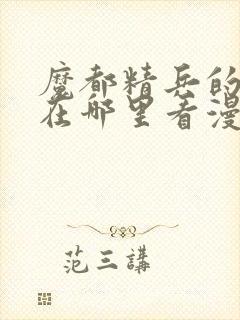 魔都精兵的
在哪里看漫
范三講